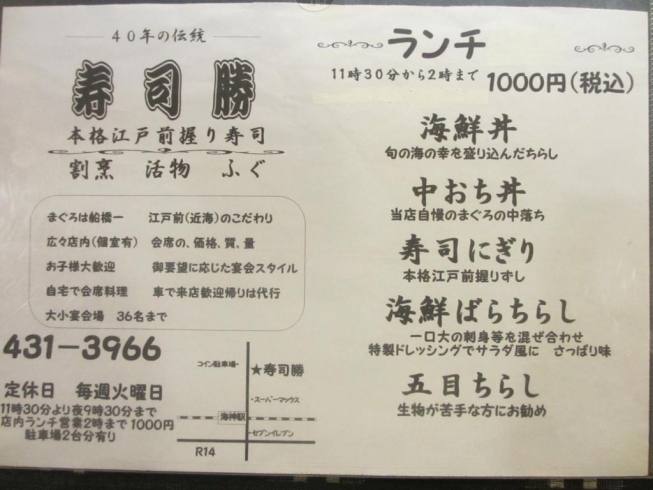 40年の伝統
寿司勝
本格江戸前握り寿司
割烹 活物 ふぐ
まぐろは船橋一 江戸前(近海)のこだわり
広々店内(個室有) 会席の、価格、質、量
お子様大歓迎 御要望に応じた宴会スタイル
自宅で会席料理 車で来店歓迎帰りは代行
大小宴会場 36名まで
431-3966
定休日 毎週火曜日
11時30分より夜9時30分まで
店内ランチ営業2時まで1000円
駐車場2台分有り
コイン駐車場
★寿司勝
スーパーマックス
海神駅
セブンイレブン
R14
ランチ
11時30分から2時まで 1000円(税込)
海鮮丼
旬の海の幸を盛り込んだちらし
中おち丼
当店自慢のまぐろの中落ち
寿司にぎり
本格江戸前握りずし
海鮮ばらちらし
一口大の刺身等を混ぜ合わせ
特製ドレッシングでサラダ風に さっぱり味
五目ちらし
生物が苦手な方にお勧め